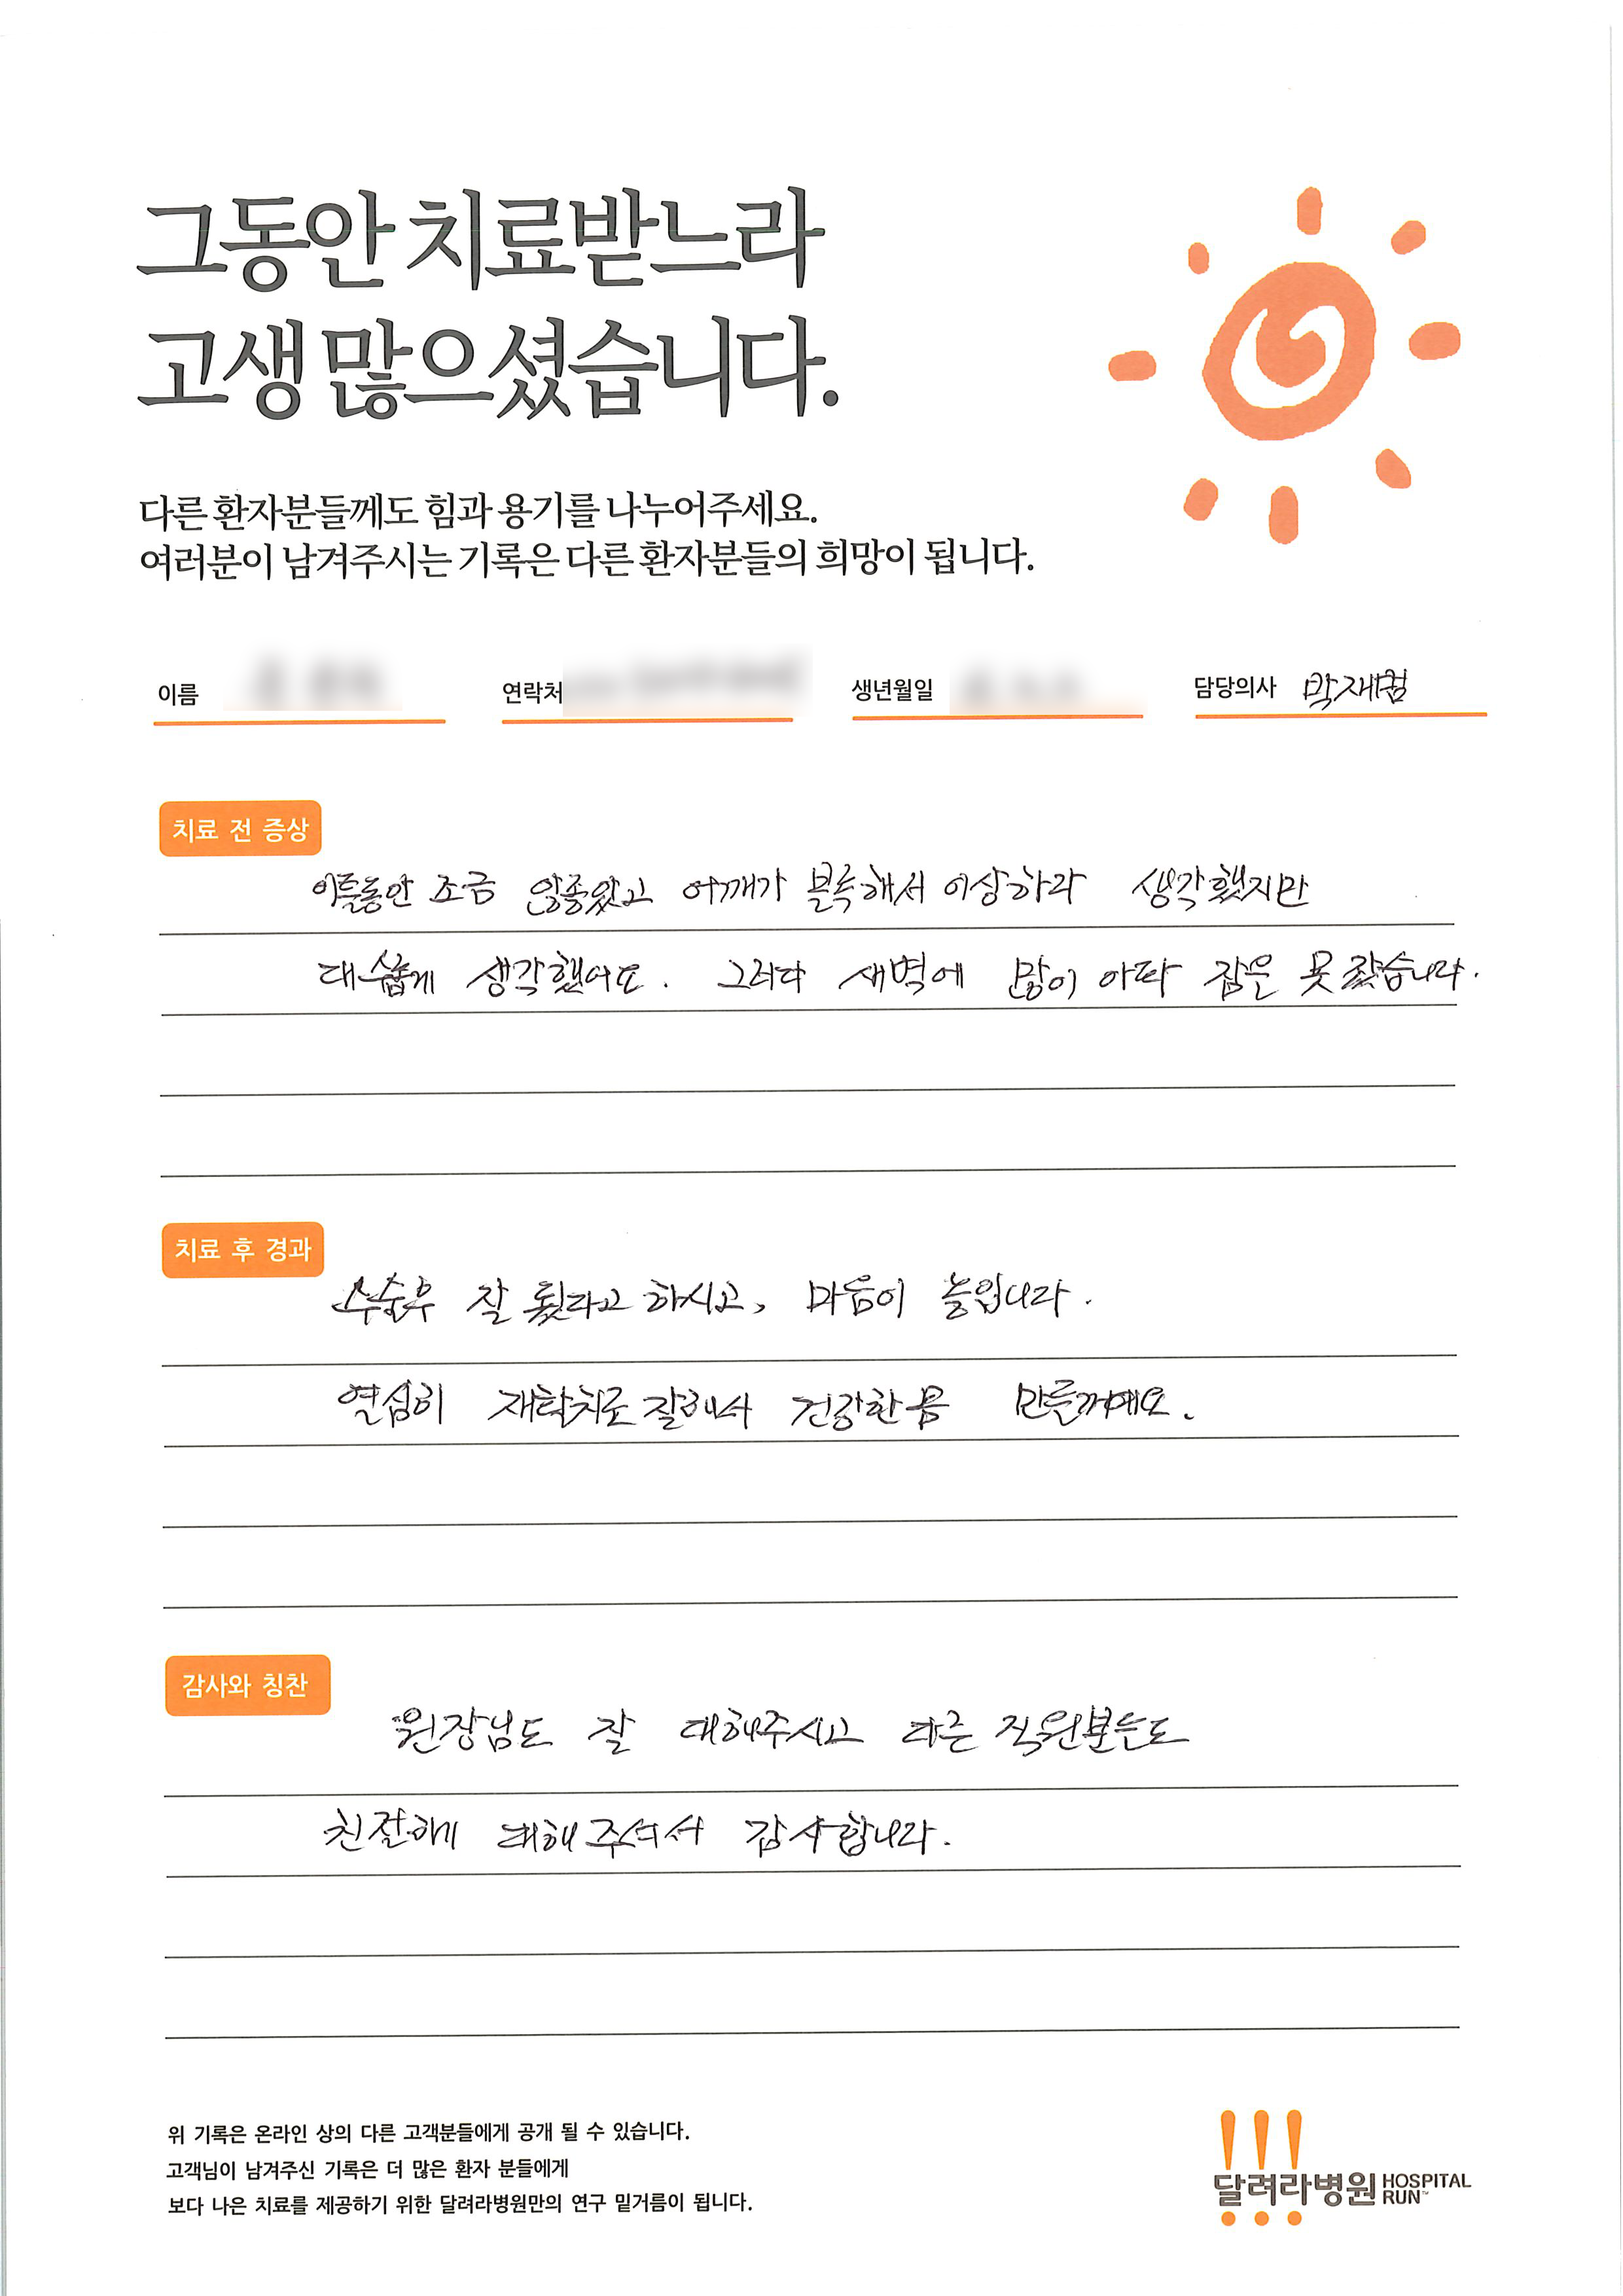 그동안 치료받느라
고생 많으셨습니다.
다른 환자분들께도 힘과 용기를 나누어주세요.
여러분이 남겨주시는 기록은 다른 환자분들의 희망이 됩니다.
이름 연락처 생년월일 담당의사
치료 전 증상
이틀동안 조금 않좋았고 어깨가 볼록해서 이상하라 생각했지만
대수롭게 생각했어요. 그러다 새벽에 많이 아파 잠은 못 잤습니다.
치료 후 경과
수술후 잘 됬다고 하시고, 마음이 놓입니다.
열심히 재활치료 잘해서 건강한 몸 만들꺼예요.
감사와 칭찬
원장님도 잘 대해주시고 다른 직원분들도
친절하게 대해 주셔서 감사합니다.
위 기록은 온라인 상의 다른 고객분들에게 공개 될 수 있습니다.
고객님이 남겨주신 기록은 더 많은 환자 분들에게
보다 나은 치료를 제공하기 위한 달려라병원만의 연구 밑거름이 됩니다.
달려라병원 HOSPITAL RUN™